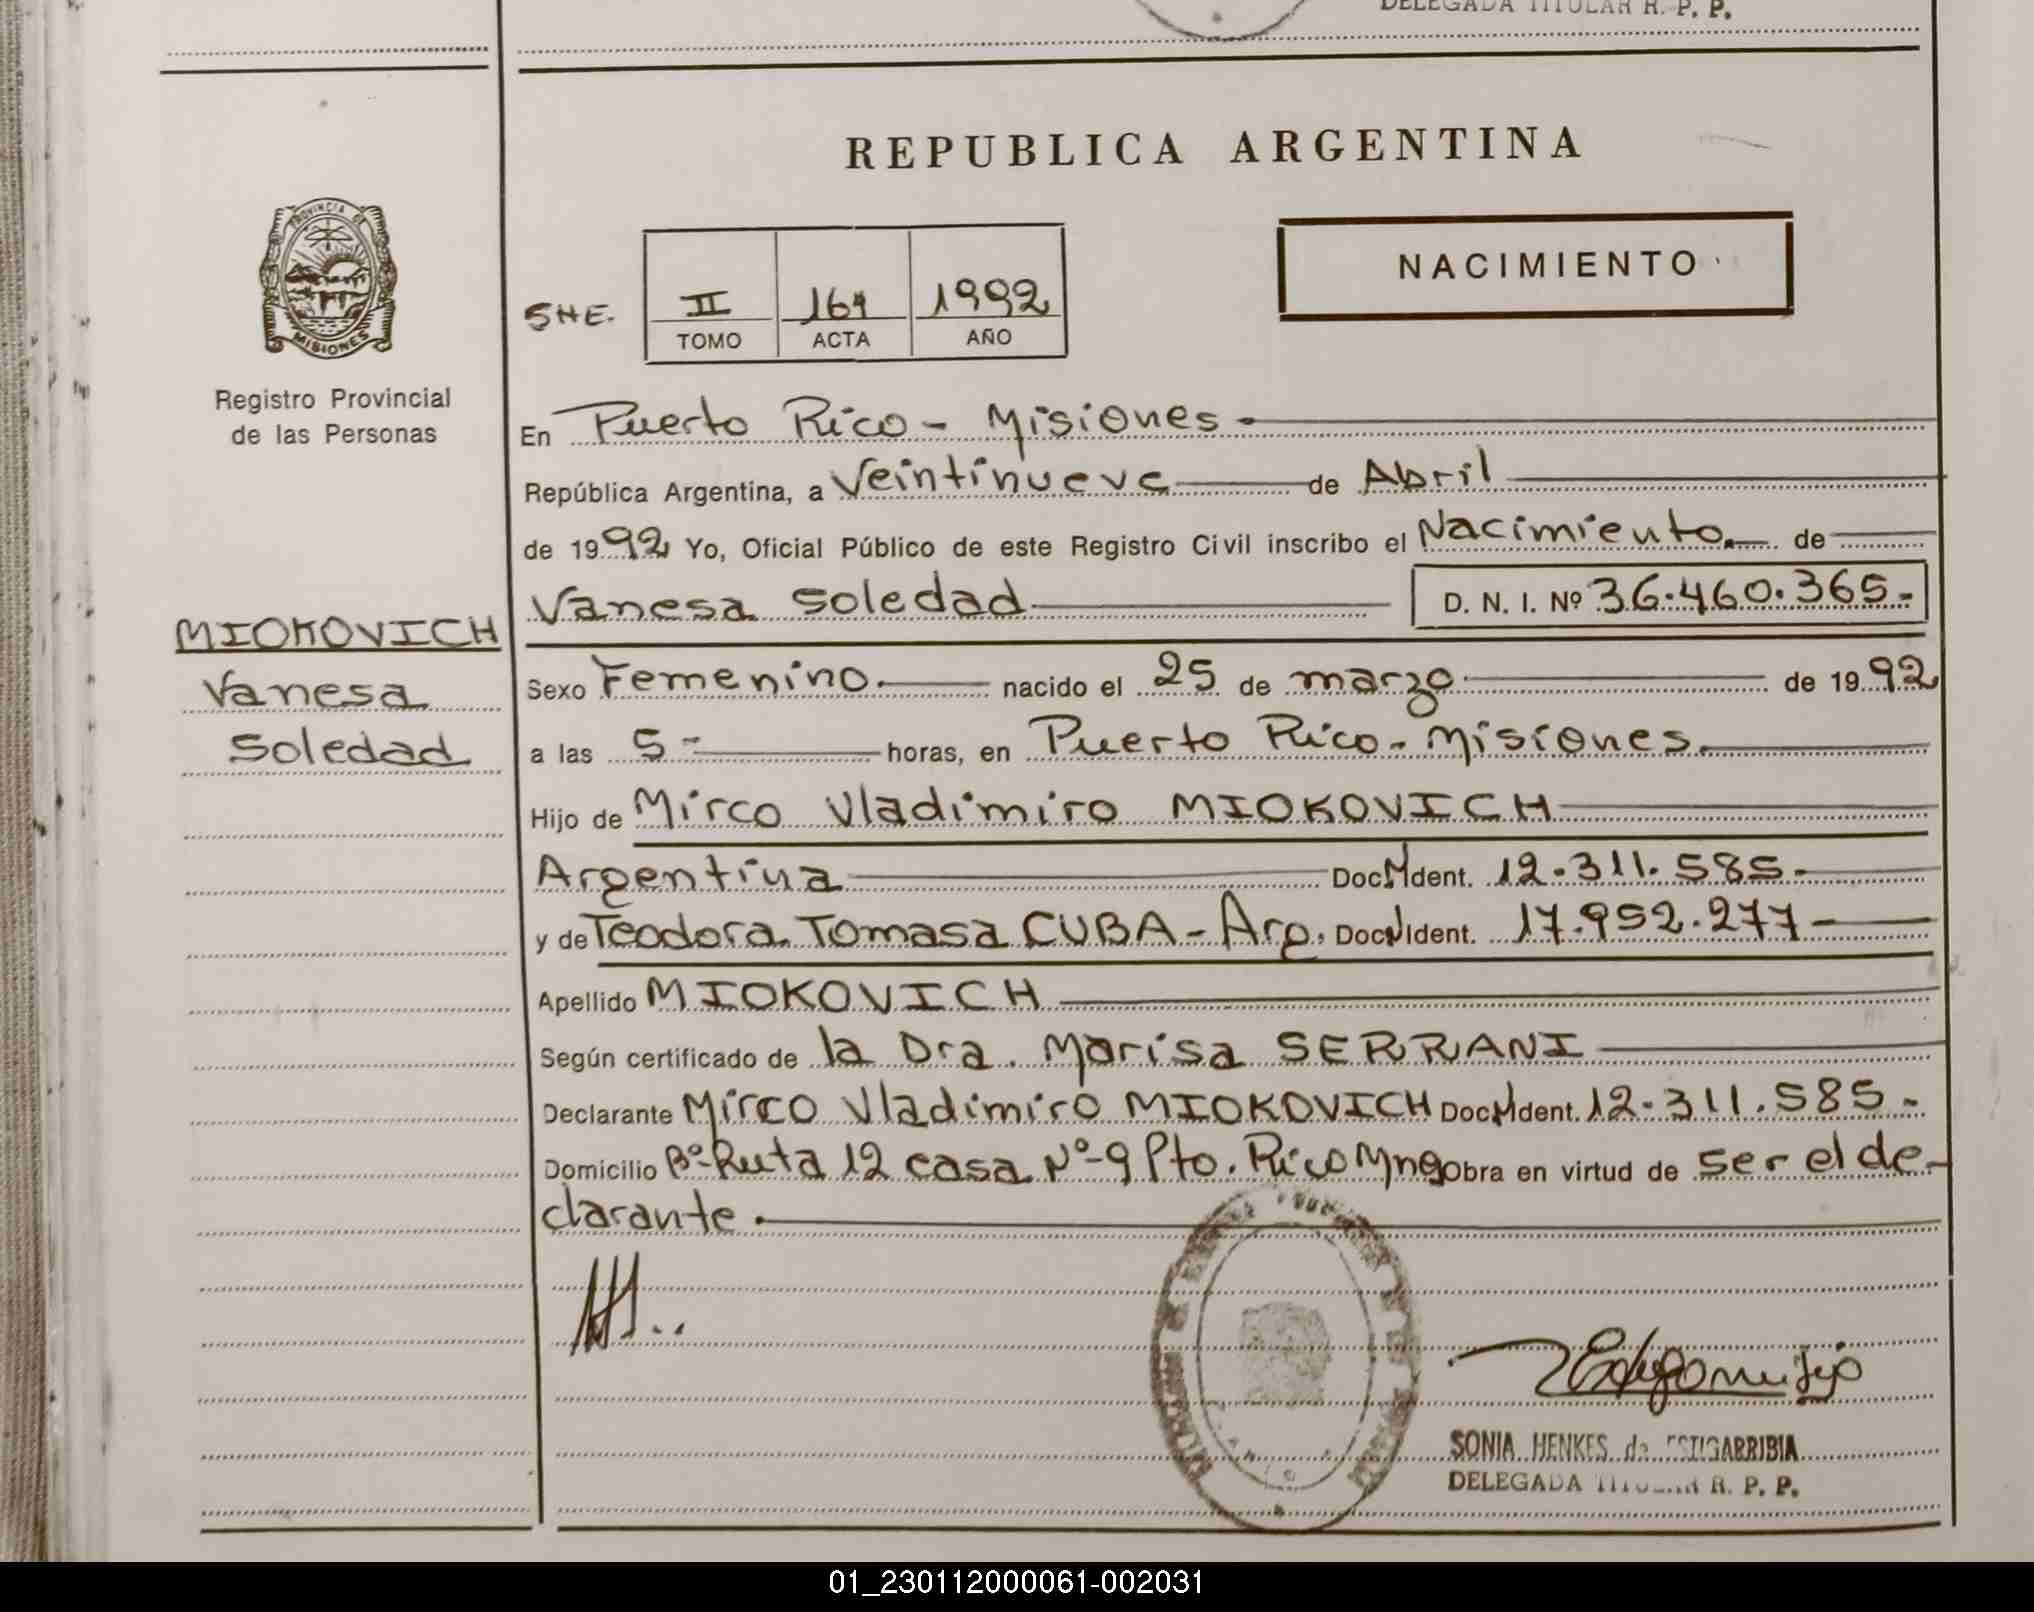 DELEGADA TITULAR R. P. P.
REPUBLICA ARGENTINA
PROVINCIA DE
MISIONES
NACIMIENTO
SHE. II 164 1992
TOMO ACTA AÑO
Registro Provincial
de las Personas
En Puerto Rico - Misiones -
República Argentina, a Veintinueve de Abril
de 1992 Yo, Oficial Público de este Registro Civil inscribo el Nacimiento. de
Vanesa Soledad D. N. I. Nº 36.460.365.-
MIOKOVICH
Vanesa
Soledad
Sexo Femenino. nacido el 25 de marzo de 1992
a las 5- horas, en Puerto Rico - Misiones.
Hijo de Mirco Vladimiro MIOKOVICH
Argentina Doc. Ident. 12.311.585.-
y de Teodora Tomasa CUBA - Arg. Doc. Ident. 17.952.277-
Apellido MIOKOVICH
Según certificado de la Dra. Marisa SERRANI
Declarante Mirco Vladimiro MIOKOVICH Doc. Ident. 12.311.585.-
Domicilio Bº-Ruta 12 casa Nº-9 Pto. Rico Mnes obra en virtud de ser el de-
clarante.
SONIA HENKES de ESTIGARRIBIA
DELEGADA TITULAR R. P. P.
01_230112000061-002031